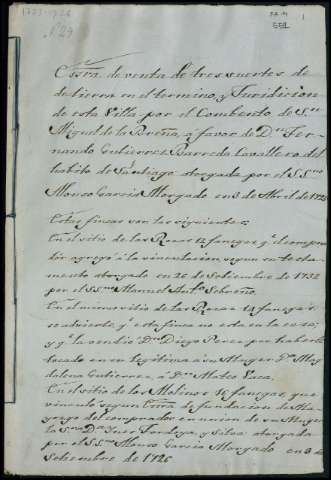 1723-1726
N. 29
1
551
Essra. de venta de tres suertes de
de tierra en el termino, y Juridicion
de esta Villa por el Combento de Sn.
Miguel de la Breña, a favor de Dn. Fer-
nando Gutierrez Barreda Cavallero del
habito de Santiago otorgada por el SSno.
Alonso Garcia Morgado en 3 de Abril de 1723
Estas fincas son las siguientes:
En el sitio de las Rozas 12 fanegas q.e el compra-
dor agregó á la vinculacion segun su testa-
mento otorgado en 26 de Setiembre de 1732
por el SSno. Manuel Anto. Sobreño.
En el mismo sitio de las Rozas 14 fanegas
se advierte q.e esta finca no esta en la casa;
y q.e la vendió Dn. Diego Perez por haberle
tocado en su legitima a su Muger Da. Mag
dalena Gutierrez a Dn. Mateo Vaca.
En el sitio de los Molinos 10 fanegas, que
vinculó segun Essra. de fundacion de Ma-
yrazgo del comprador en union de su Muger
la Sra. Da. Ines Tordoya, y Silva otorgada
por el SSno. Alonso Garcia Morgado en 3 de
Setiembre de 1726